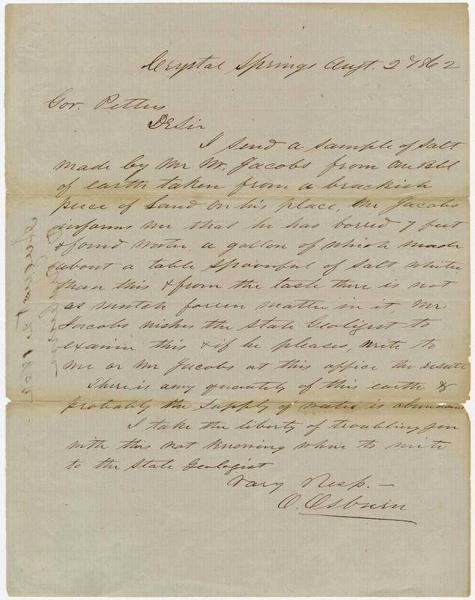 Crystal Springs Augt. 2d 1862
Gov. Pettus
DrSir
I send a sample of Salt
made by Mr W. Jacobs from one Bbl
of earth taken from a brackish
piece of Land on his place, Mr Jacobs
informs me that he has borred 7 feet
& found water a gallon of which made
about a table spoonful of salt whiter
than this & from the taste there is not
as mutch foreen matter in it Mr
Jacobs wishes the State Geologist to
examin this & if he pleases, write to
me or Mr Jacobs at this office the result
There is any quantity of this earth &
probably the supply of water is abundant
I take the liberty of troubling you
with this not knowing where to write
to the State Geologist
Vary Resp.-
O. Osburn